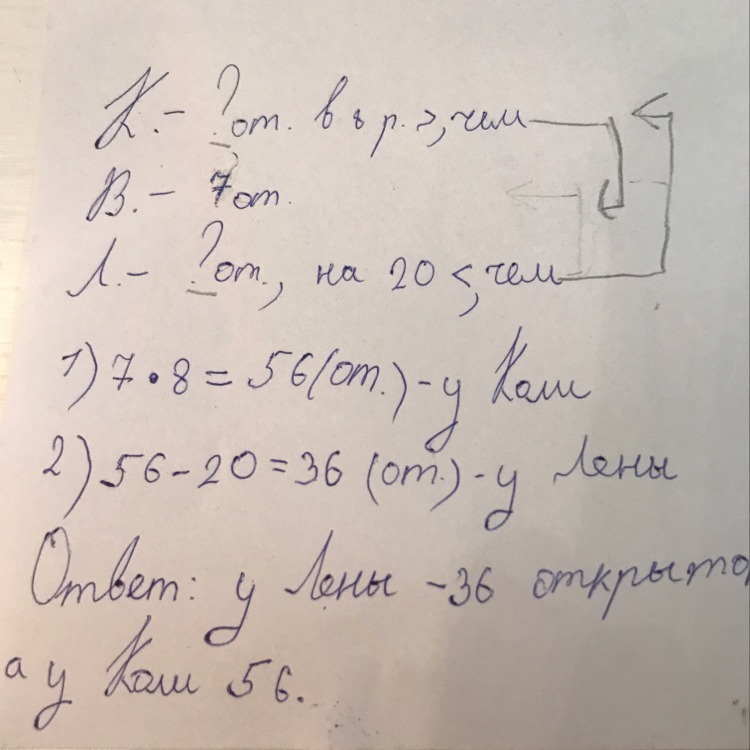 К. - ? от. в 8 р. >, чем
В. - 7 от.
Л. - ? от., на 20 <, чем
1) 7 • 8 = 56 (от.) - у Коли
2) 56 - 20 = 36 (от.) - у Лены
Ответ: у Лены - 36 открыток
а у Коли 56.